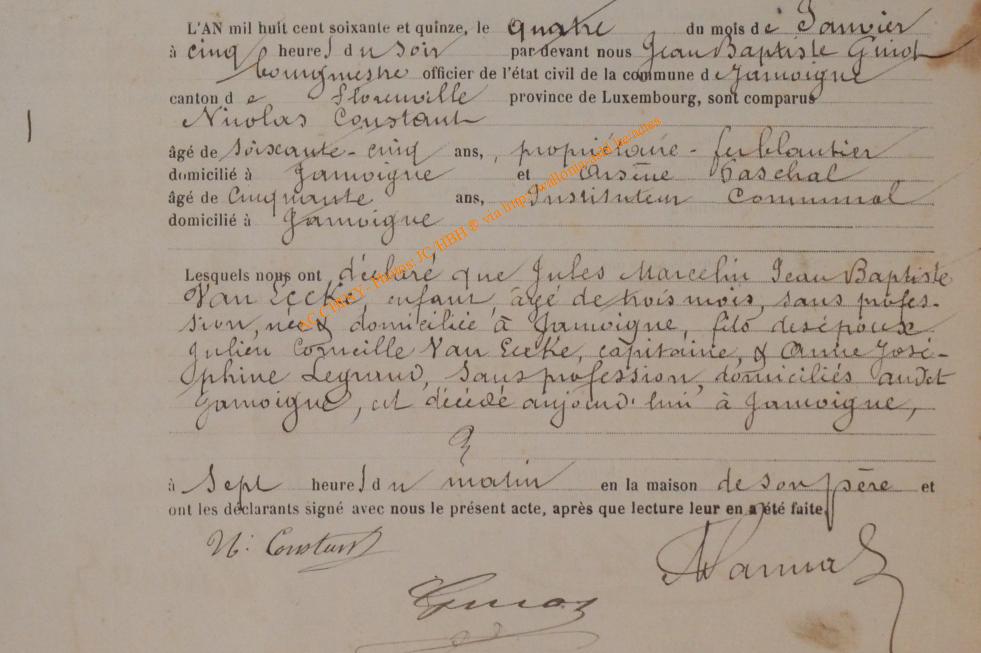 L'AN mil huit cent soixante et quinze, le quatre du mois de Janvier
à cinq heures du soir par devant nous Jean Baptiste Guiot
bourgmestre officier de l'état civil de la commune de Jamoigne
canton de Florenville province de Luxembourg, sont comparus
Nicolas Constant
âgé de soixante-cinq ans, propriétaire - ferblantier
domicilié à Jamoigne et Arsène Paschal
âgé de cinquante ans, Instituteur Communal
domicilié à Jamoigne
Lesquels nous ont déclaré que Jules Marcelin Jean Baptiste
Van Eecke, enfant, âgé de trois mois, sans profes-
sion, née & domiciliée à Jamoigne, fils des époux
Julien Corneille Van Eecke, capitaine, & Anne José-
phine Legrand, sans profession, domiciliés audit
Jamoigne, est décédé aujourd'hui à Jamoigne,
à Sept heures du matin en la maison de son père et
ont les déclarants signé avec nous le présent acte, après que lecture leur en a été faite.
N. Constant
Guiot